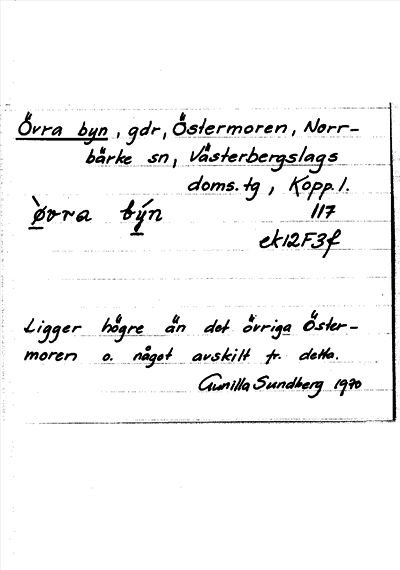 Övra byn, gdr, Östermoren, Norr-
bärke sn, Västerbergslags
doms. tg, Kopp. l.
øvra býn 117
ek12F3f
Ligger högre än det övriga Öster-
moren o. något avskilt fr. detta.
Gunilla Sundberg 1970